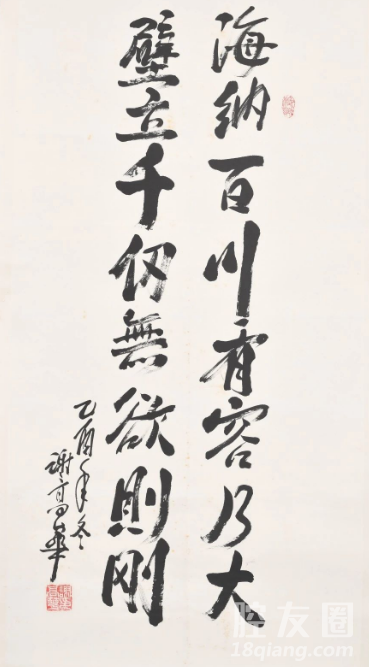 海纳百川有容乃大
壁立千仞無欲則刚
乙酉年冬
谢高华
腔友圈
18qiang.com